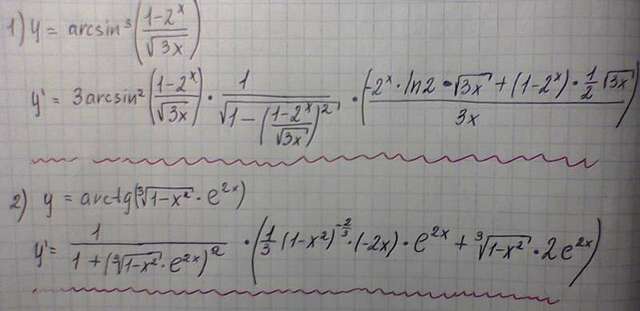 1) y = arcsin³((1-2ˣ)/√3x)
y' = 3arcsin²((1-2ˣ)/√3x) · 1/√(1-((1-2ˣ)/√3x)²) · ((-2ˣ · ln2 · √3x + (1-2ˣ) · 1/2 √3x)/3x)
2) y = arctg(∛(1-x²) · e²ˣ)
y' = 1/(1+(∛(1-x²) · e²ˣ)²) · (1/3 (1-x²)^(-2/3) · (-2x) · e²ˣ + ∛(1-x²) · 2e²ˣ)